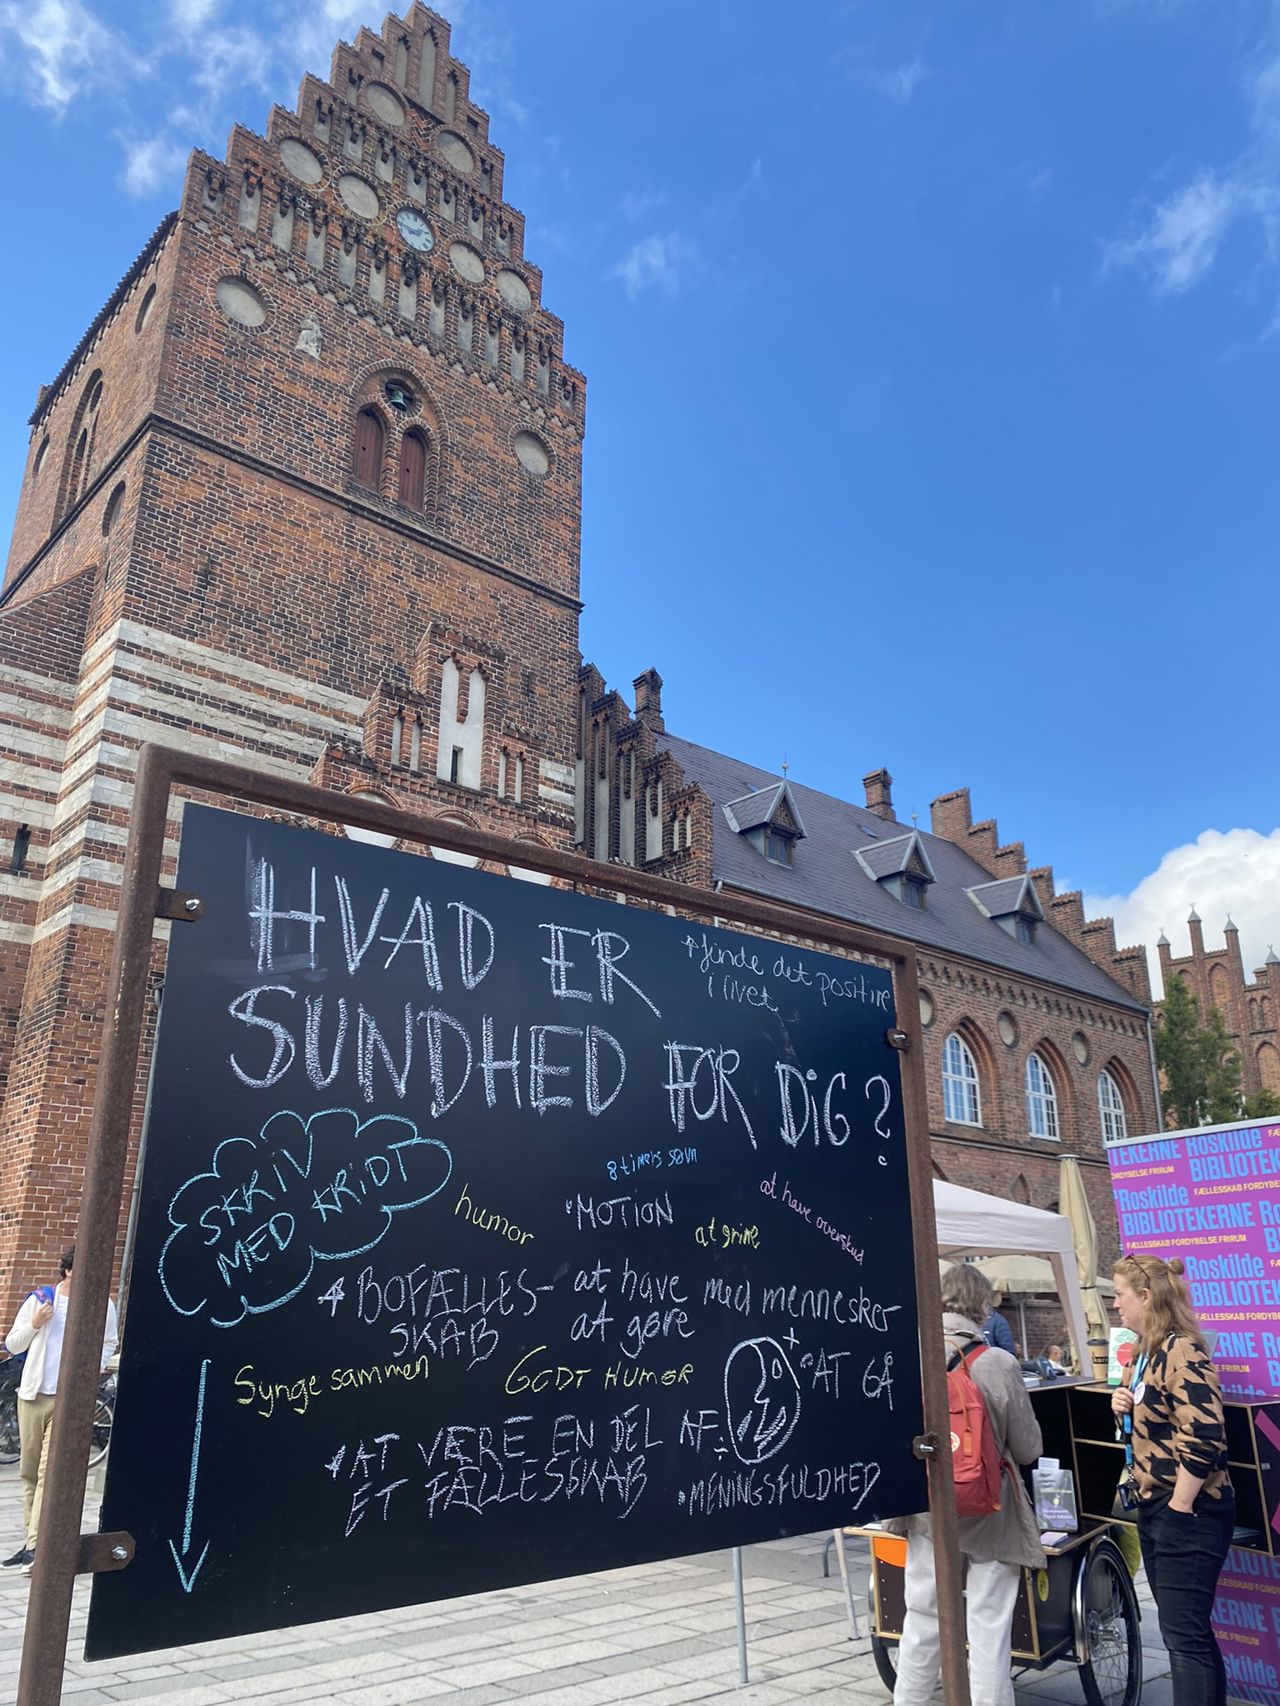 HVAD ER
SUNDHED FOR DIG?
finde det positive
i livet
SKRIV
MED KRIDT
8 timers søvn
humor
MOTION
at grine
at have overskud
BOFÆLLES-
SKAB
at have mad mennesker
at gøre
Synge sammen
GODT HUMØR
AT GÅ
AT VÆRE EN DEL AF
ET FÆLLESSKAB
MENINGSFULDHED
TEKERNE Roskilde
BIBLIOTEK
FÆLLESSKAB FORDYBE
Roskilde
BIBLIOTEKERNE
FÆLLESSKAB FORDYBELSE FRIRUM
Roskilde
BIBLIOTEK